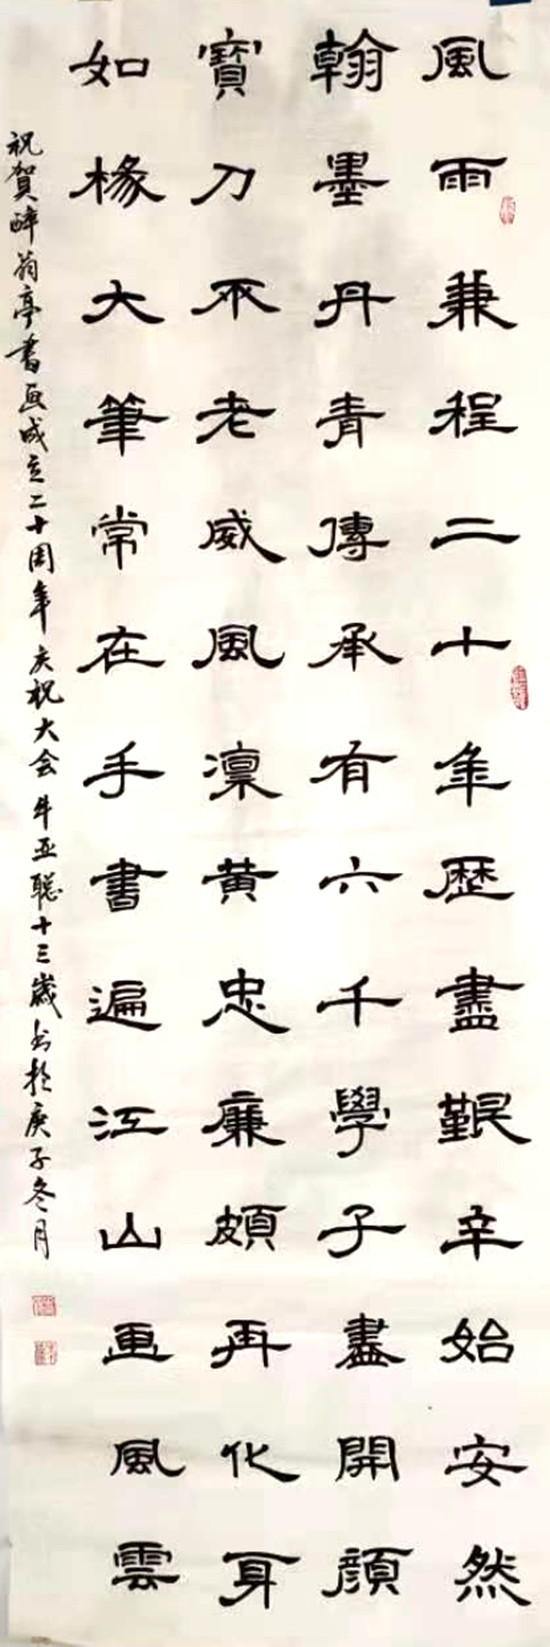 風雨兼程二十年歷盡艱辛始安然
翰墨丹青傳承有六千學子盡開顔
寶刀不老威風凛黄忠廉頗再化身
如椽大筆常在手書遍江山画風雲
祝賀醉翁亭書画成立二十周年庆祝大会 牛亚聪十三歲书於庚子冬月